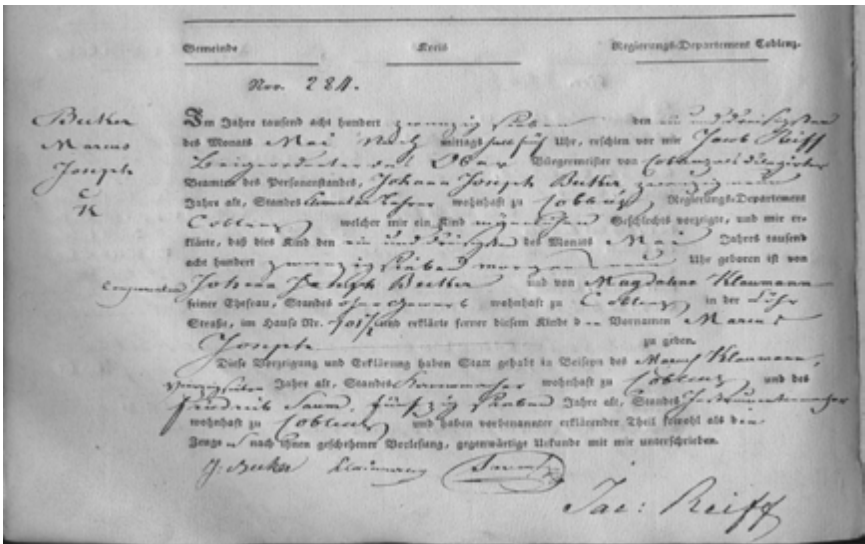 Gemeinde Kreis Regierungs-Departement Coblenz.
Nro. 284.
Becker
Marcus
Joseph
Im Jahre tausend acht hundert zwanzig sieben den ein und dreisigsten
des Monats Mai Nach mittags halb fünf Uhr, erschien vor mir Jacob Reiff
Beigeordneter des Ober Bürgermeister von Coblenz als
Beamten des Personenstandes, Johann Joseph Becker, zwanzig neun
Jahre alt, Standes Lehrer wohnhaft zu Coblenz Regierungs-Departement
Coblenz welcher mir ein Kind männlichen Geschlechts vorzeigte, und mir er-
klärte, daß dies Kind den ein und dreisigsten des Monats Mai Jahrs tausend
acht hundert zwanzig sieben morgens neun Uhr geboren ist von
Johann Joseph Becker und von Magdalena Klaumann
seiner Ehefrau, Standes ohne Gewerb wohnhaft zu Coblenz in der Löhr
Straße, im Hause Nr. und erklärte ferner diesem Kinde den Vornamen Marcus
Joseph zu geben.
Diese Vorzeigung und Erklärung haben Statt gehabt in Beiseyn des Klaumann,
Jahre alt, Standes wohnhaft zu Coblenz und des
Friedrich fünfzig sieben Jahre alt, Standes Instrumentenmacher
wohnhaft zu Coblenz und haben vorbenannter erklärender Theil sowohl als die
Zeugen nach ihnen geschehener Vorlesung, gegenwärtige Urkunde mit mir unterschrieben.
J. Becker Klaumann
Jac: Reiff